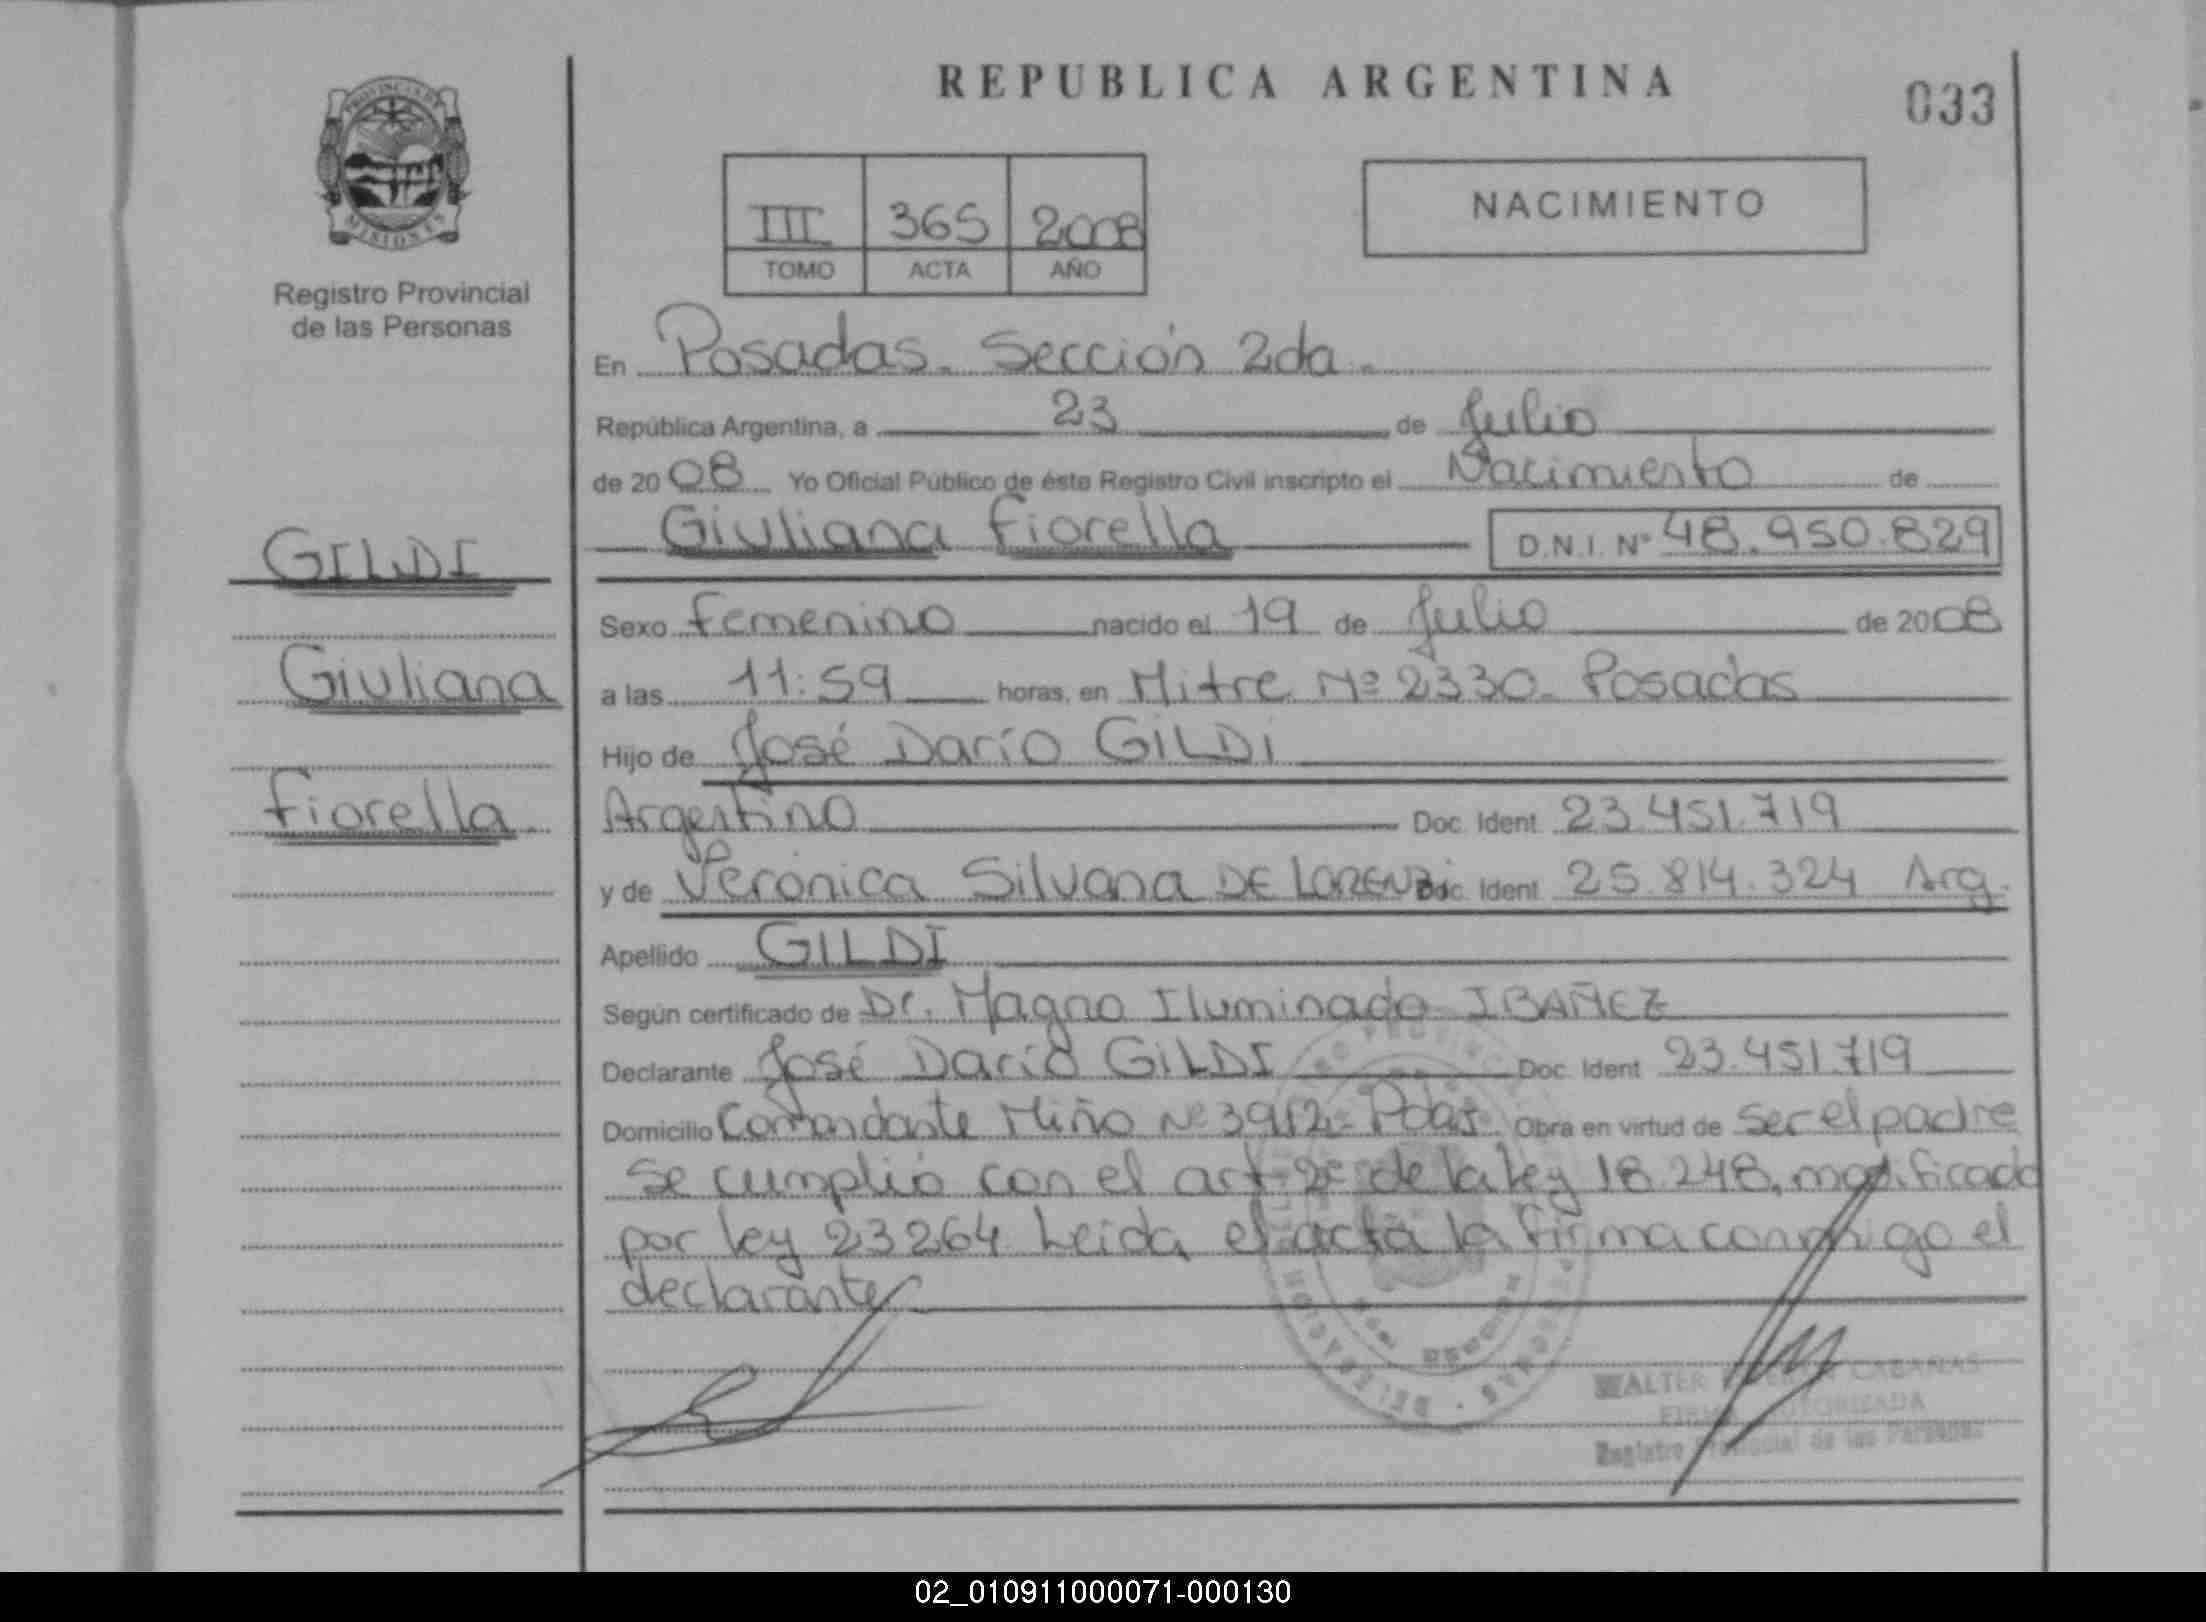 REPUBLICA ARGENTINA
033
PROVINCIA DE
MISIONES
Registro Provincial
de las Personas
III 365 2008
TOMO ACTA AÑO
NACIMIENTO
En Posadas. Sección 2da.
República Argentina, a 23 de Julio
de 2008 Yo Oficial Público de éste Registro Civil inscripto el Nacimiento de
Giuliana Fiorella D.N.I. Nº 48.950.829
GILDI
Giuliana
Fiorella
Sexo Femenino nacido el 19 de Julio de 2008
a las 11:59 horas, en Mitre Nº 2330. Posadas
Hijo de José Darío GILDI
Argentino Doc. Ident. 23.451.719
y de Verónica Silvana DE LORENZI Doc. Ident. 25.814.324 Arg.
Apellido GILDI
Según certificado de Dr. Magno Iluminado IBAÑEZ
Declarante José Darío GILDI Doc. Ident. 23.451.719
Domicilio Comandante Miño Nº 3912 - Pdas Obra en virtud de ser el padre
se cumplió con el art. 2º de la ley 18.248, modificado
por ley 23264 Leida el acta la firma conmigo el
declarante
WALTER CABAÑAS
FIRMA AUTORIZADA
Registro Provincial de las Personas
02_010911000071-000130